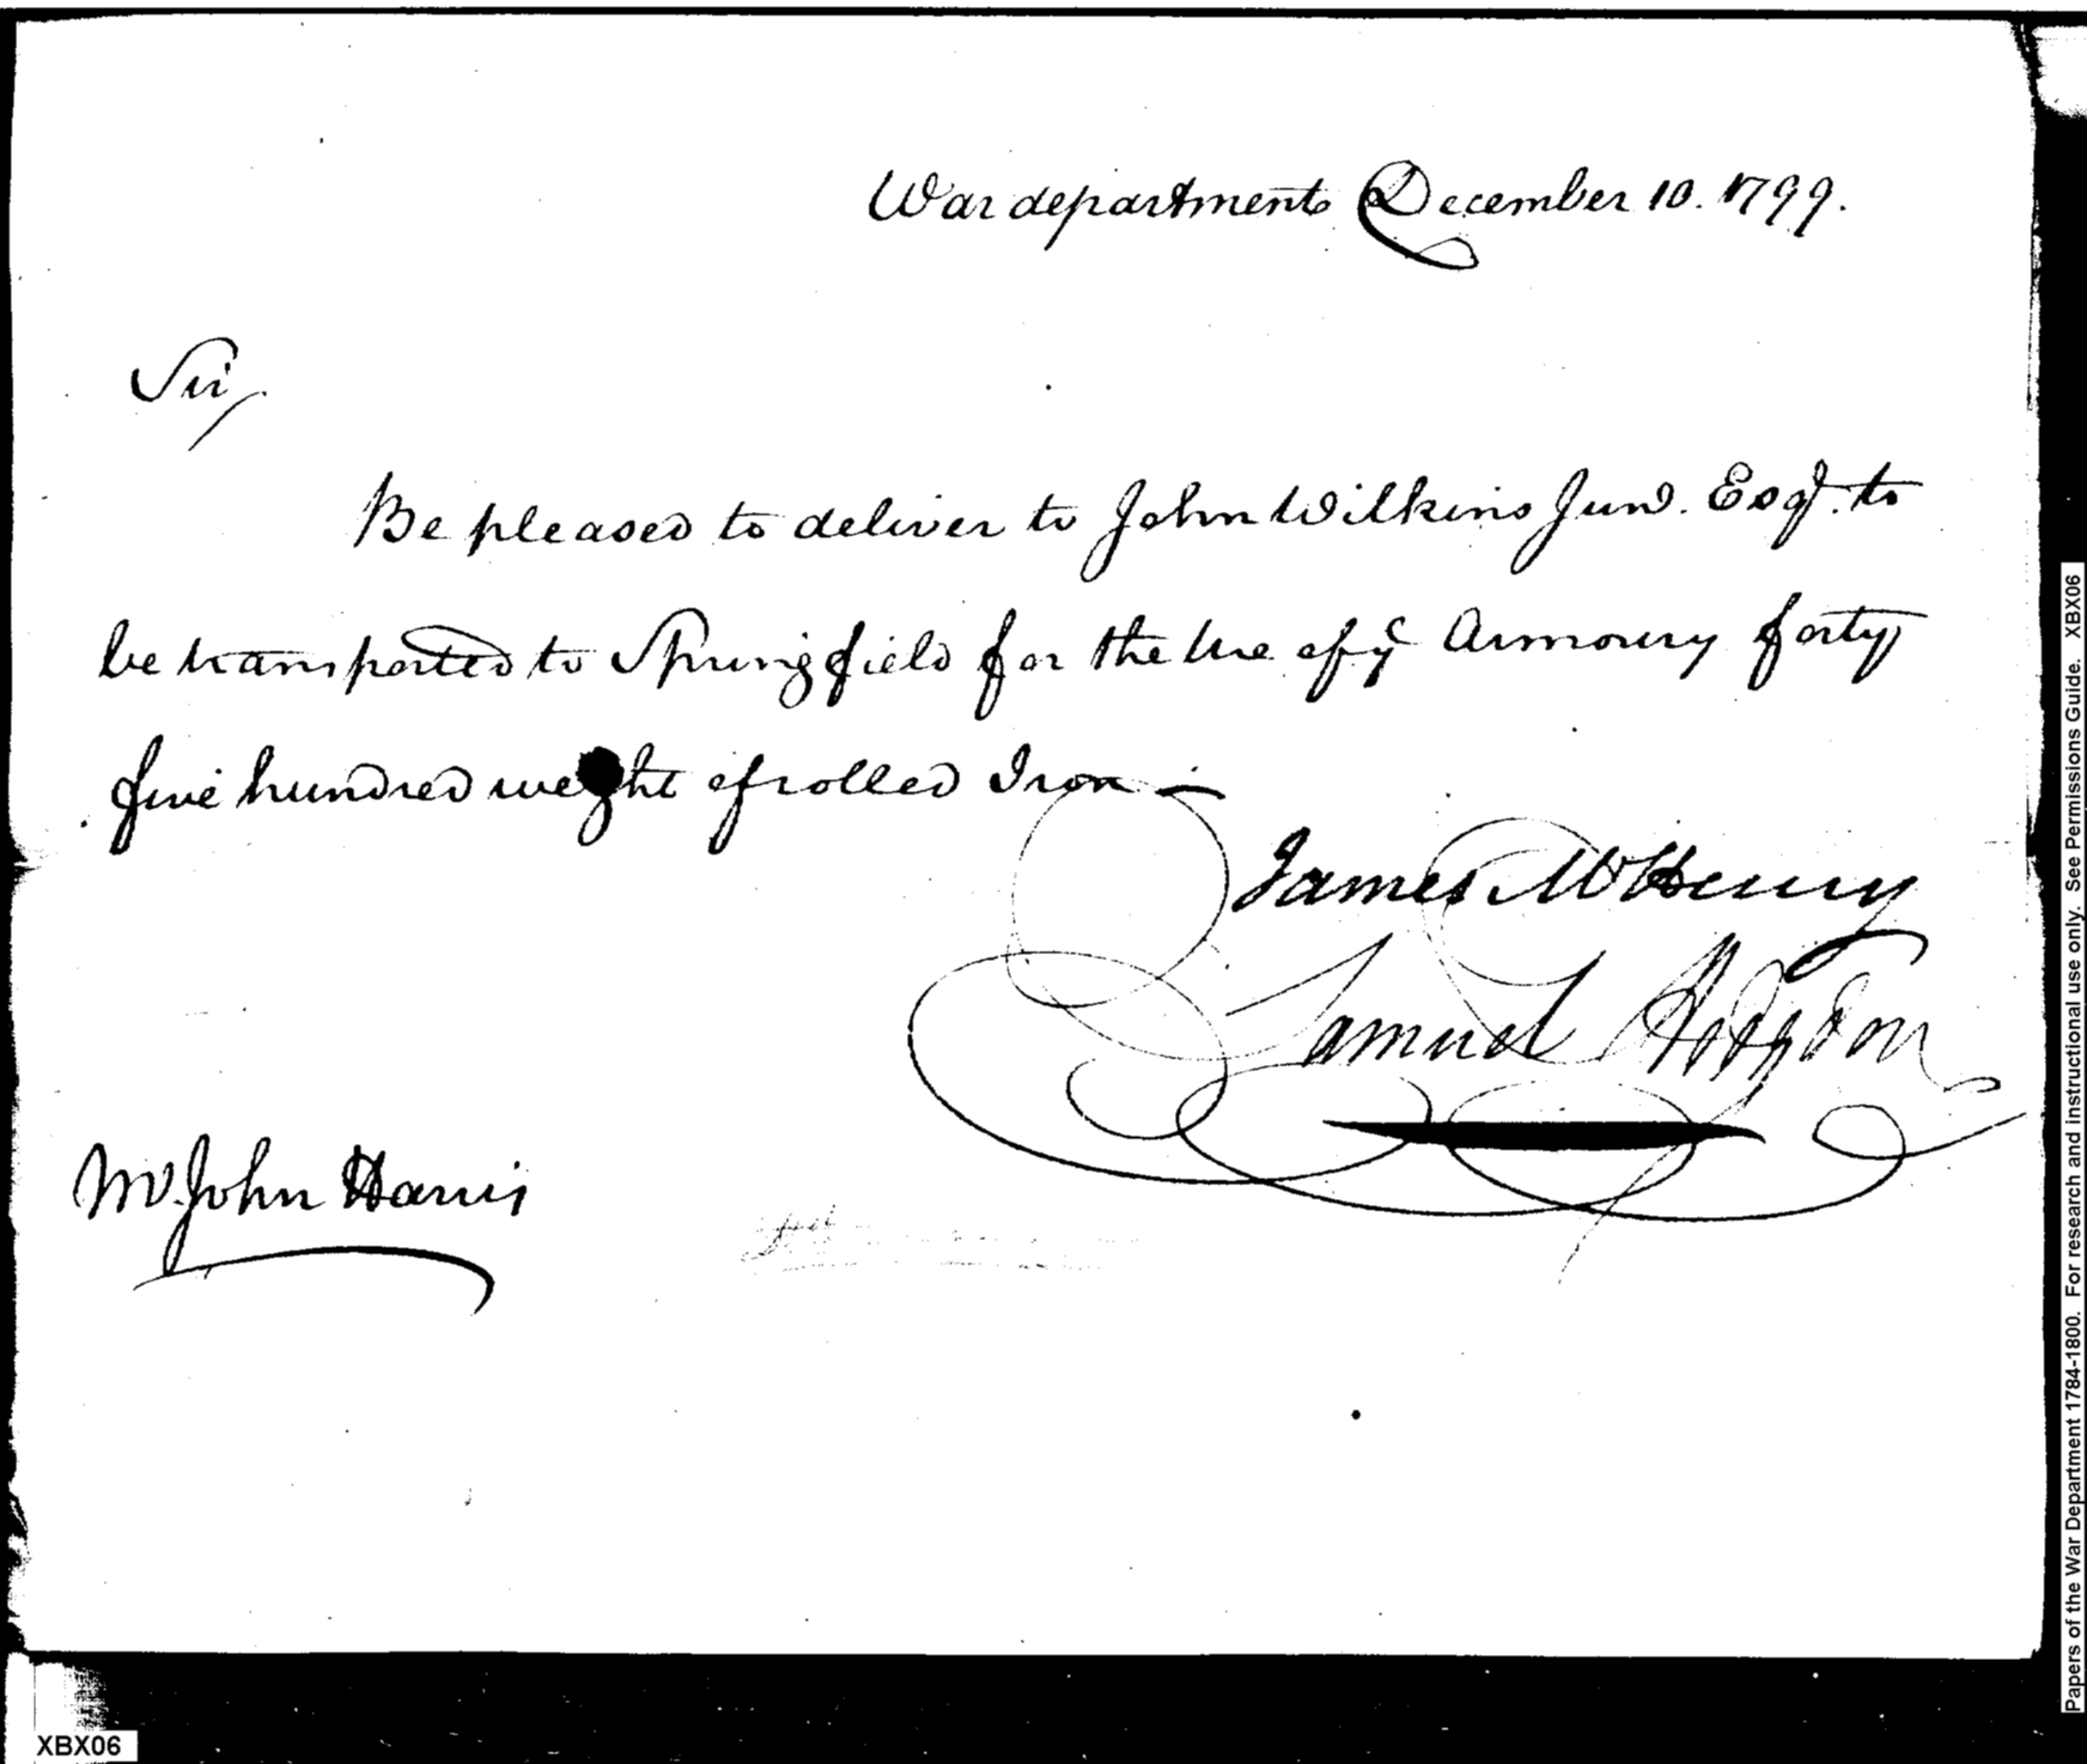 War department December 10. 1799.
Sir,
Be pleased to deliver to John Wilkins Junr. Esqr. to
be transported to Springfield for the Use of ye Armoury forty
five hundred weight of rolled Iron —
James McHenry
Samuel Hodgdon
Mr. John Harris
XBX06
Papers of the War Department 1784-1800. For research and instructional use only. See Permissions Guide. XBX06